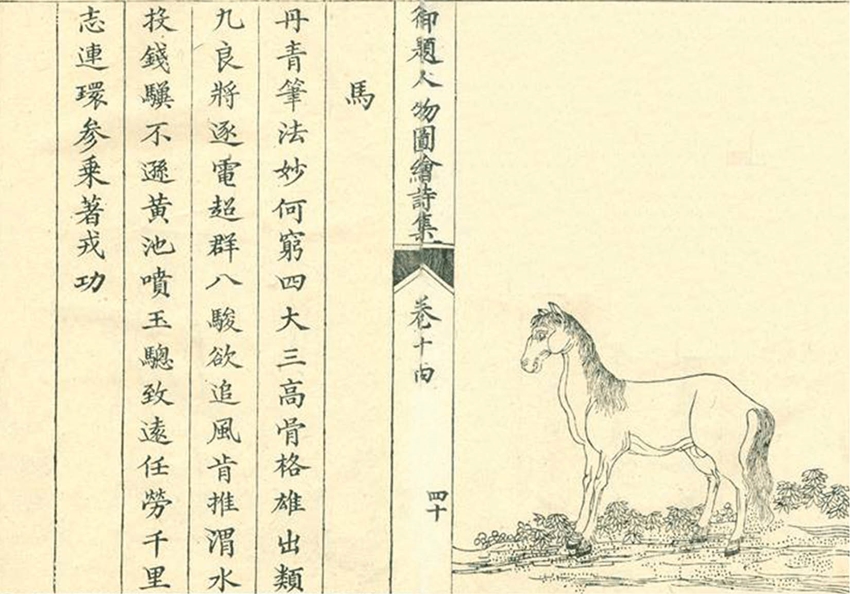 御題人物圖繪詩集
卷十
四十
馬
丹青筆法妙何窮四大三高骨格雄出類
九良將逐電超群八駿欲追風肯推渭水
投錢驥不遜黄池噴玉驄致遠任勞千里
志連環参乗著戎功